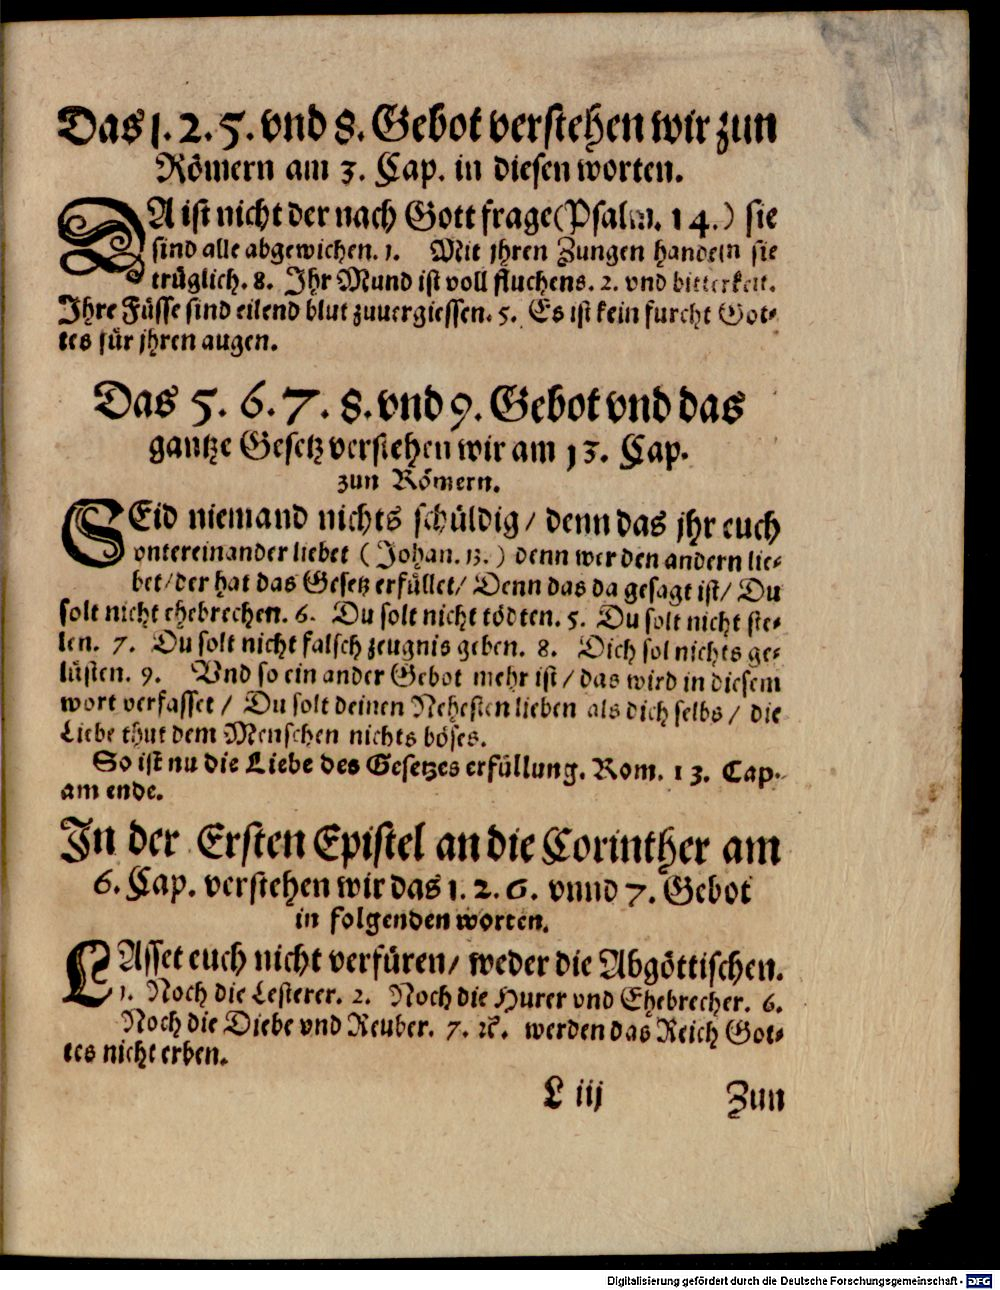 Das 1. 2. 5. vnd 8. Gebot verstehen wir zun
Römern am 3. Cap. in diesen worten.
DA ist nicht der nach Gott frage (Psalm. 14.) sie
sind alle abgewichen. 1. Mit jhren Zungen handeln sie
trüglich. 8. Ihr Mund ist voll fluchens. 2. vnd bitterkeit.
Ihre Füsse sind eilend blut zuuergiessen. 5. Es ist kein furcht Got-
tes für jhren augen.
Das 5. 6. 7. 8. vnd 9. Gebot vnd das
gantze Gesetz verstehen wir am 13. Cap.
zun Römern.
SEid niemand nichts schüldig / denn das jhr euch
vntereinander liebet (Johan. 13.) denn wer den andern lie-
bet / der hat das Gesetz erfüllet / Denn das da gesagt ist / Du
solt nicht ehebrechen. 6. Du solt nicht tödten. 5. Du solt nicht ste-
len. 7. Du solt nicht falsch zeugnis geben. 8. Dich sol nichts ge-
lüsten. 9. Vnd so ein ander Gebot mehr ist / das wird in diesem
wort verfasset / Du solt deinen Nehesten lieben als dich selbs / die
Liebe thut dem Menschen nichts böses.
So ist nu die Liebe des Gesetzes erfüllung. Rom. 13. Cap.
am ende.
In der Ersten Epistel an die Corinther am
6. Cap. verstehen wir das 1. 2. 6. vnnd 7. Gebot
in folgenden worten.
LAsset euch nicht verfüren / weder die Abgöttischen.
1. Noch die Lesterer. 2. Noch die Hurer vnd Ehebrecher. 6.
Noch die Diebe vnd Reuber. 7. ꝛc. werden das Reich Got-
tes nicht erben.
L iij
Zun
Digitalisierung gefördert durch die Deutsche Forschungsgemeinschaft - DFG